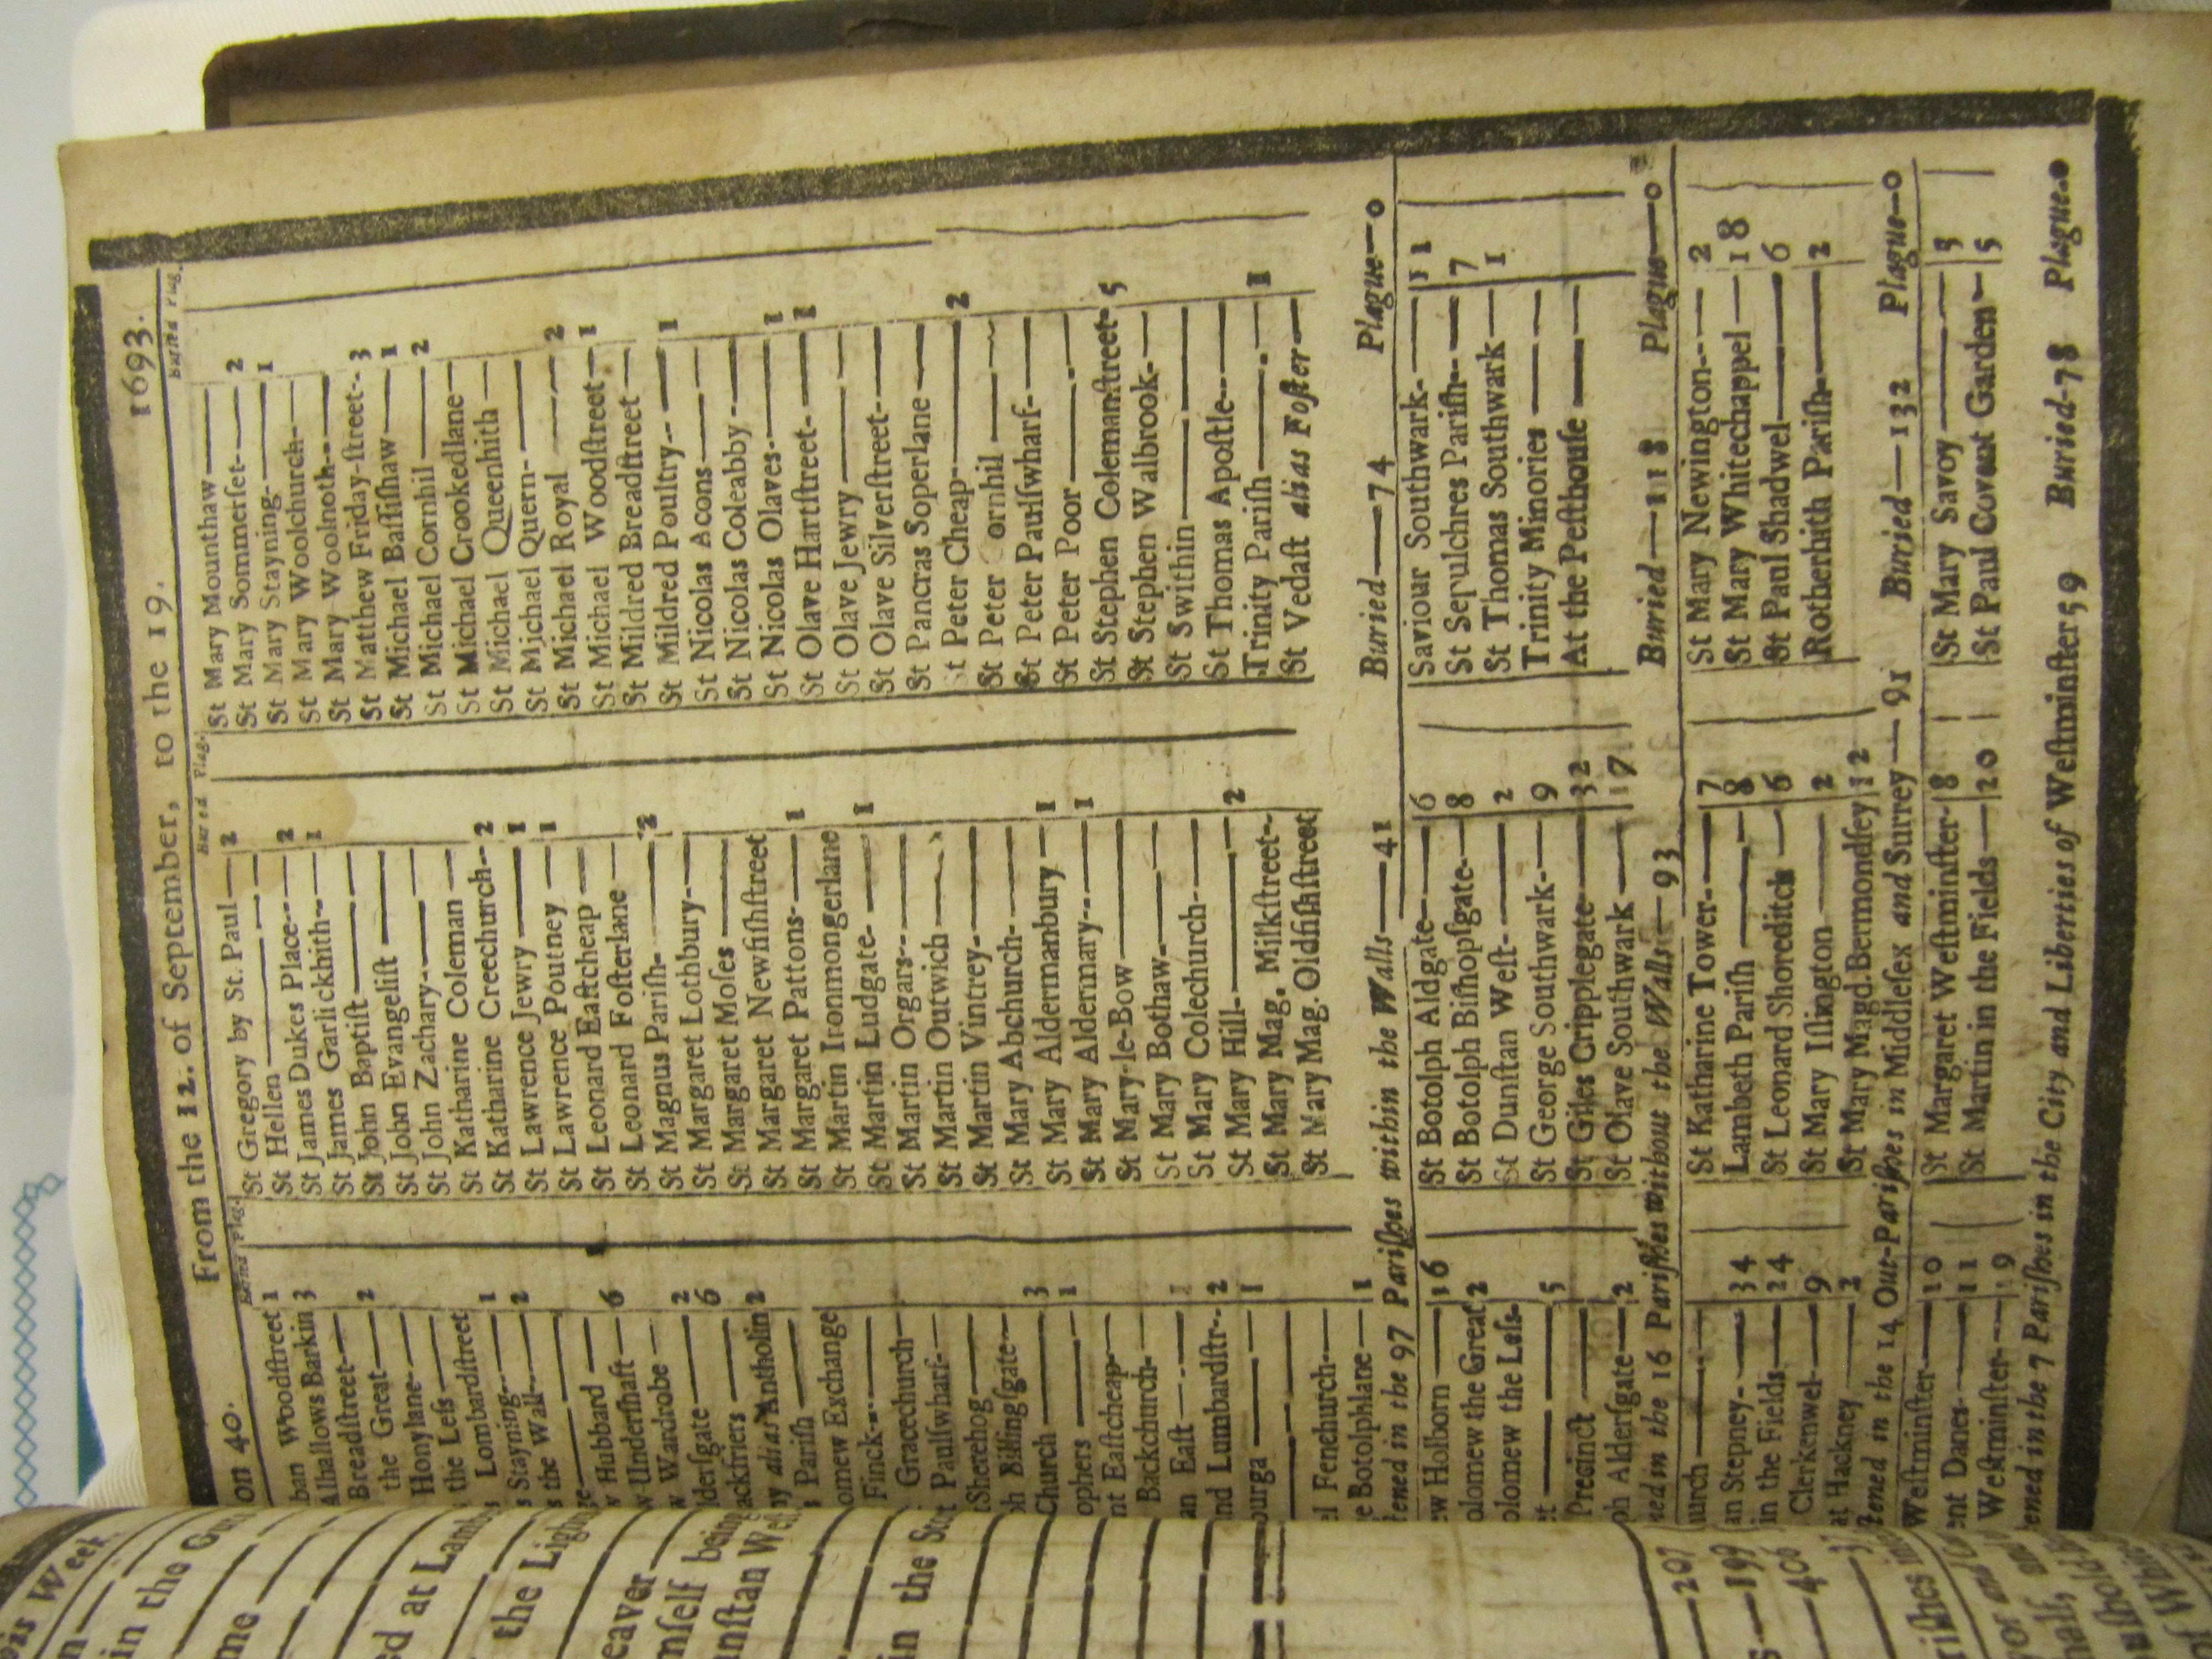 on 40. From the 12. of September, to the 19. 1693.
Buried Plag.
ban Woodſtreet 1
Alhallows Barkin 3
Breadſtreet— 2
the Great— 2
Honylane—
the Leſs—
Lombardſtreet 1
Stayning— 2
the Wall—
Hubbard — 6
Underſhaft—
Wardrobe — 2
lderſgate — 6
ackfriers —
ny alias Antholin 2
Pariſh —
omew Exchange
Finck—
Gracechurch—
t Paulſwharf—
tSherehog—
ph Billingſgate—
Church — 3
ophers — 1
nt Eaſtcheap—
Backchurch—
an Eaſt — 1
nd Lumbardſtr-- 2
ourga — 1
l Fenchurch—
e Botolphlane— 1
Buried Plag.
St Gregory by St. Paul— 2
St Hellen—
St James Dukes Place— 2
St James Garlickhith— 1
St John Baptiſt—
St John Evangeliſt —
St John Zachary—
St Katharine Coleman —
St Katharine Creechurch-- 2
St Lawrence Jewry — 1
St Lawrence Poutney — 1
St Leonard Eaſtcheap —
St Leonard Foſterlane —
St Magnus Pariſh— 2
St Margaret Lothbury—
St Margaret Moſes —
St Margaret Newfiſhſtreet
St Margaret Pattons— 1
St Martin Ironmongerlane
St Martin Ludgate— 1
St Martin Orgars—
St Martin Outwich —
St Martin Vintrey—
St Mary Abchurch—
St Mary Aldermanbury — 1
St Mary Aldermary— 1
St Mary-le-Bow —
St Mary Bothaw—
St Mary Colechurch—
St Mary Hill— 2
St Mary Mag. Milkſtreet-
St Mary Mag. Oldfiſhſtreet
Buried Plag.
St Mary Mounthaw—
St Mary Sommerſet— 2
St Mary Stayning— 1
St Mary Woolchurch—
St Mary Woolnoth—
St Matthew Friday-ſtreet-- 3
St Michael Baſſiſhaw— 1
St Michael Cornhil — 2
St Michael Crookedlane—
St Michael Queenhith —
St Michael Quern—
St Michael Royal — 2
St Michael Woodſtreet— 1
St Mildred Breadſtreet —
St Mildred Poultry— 1
St Nicolas Acons—
St Nicolas Coleabby —
St Nicolas Olaves— 1
St Olave Hartſtreet— 1
St Olave Jewry —
St Olave Silverſtreet—
St Pancras Soperlane —
St Peter Cheap— 2
St Peter ornhil —
St Peter Paulſwharf—
St Peter Poor —
St Stephen Colemanſtreet- 5
St Stephen Walbrook—
St Swithin —
St Thomas Apoſtle—
Trinity Pariſh — 1
St Vedaſt alias Foſter —
tened in the 97 Pariſhes within the Walls—41 Buried—74 Plague—0
ew Holborn — 16
olomew the Great 2
olomew the Leſs-
t — 5
Precinct —
ph Alderſgate— 2
St Botolph Aldgate— 6
St Botolph Biſhopſgate— 8
St Dunſtan Weſt— 2
St George Southwark— 9
St Giles Cripplegate— 32
St Olave Southwark — 17
Saviour Southwark— 11
St Sepulchres Pariſh— 7
St Thomas Southwark — 1
Trinity Minories —
At the Peſthouſe —
ned in the 16 Pariſhes without the Walls—93 Buried—118 Plague—0
urch —
an Stepney— 34
in the Fields— 24
Clerkenwel— 9
at Hackney — 2
St Katharine Tower— 7
Lambeth Pariſh — 8
St Leonard Shoreditch — 6
St Mary Iſlington — 2
St Mary Magd. Bermondſey 12
St Mary Newington— 2
St Mary Whitechappel — 18
St Paul Shadwel— 6
Rotherhith Pariſh— 2
tened in the 14 Out-Pariſhes in Middleſex and Surrey—91 Buried—132 Plague—0
Weſtminſter — 10
nt Danes— 11
Weſtminſter— 19
St Margaret Weſtminſter- 8
St Martin in the Fields— 20
St Mary Savoy — 3
St Paul Covent Garden — 5
tened in the 7 Pariſhes in the City and Liberties of Weſtminſter 59 Buried-78 Plague-0
his Week
in the
me
ed at Lamb
the Ligh
eaver
mſelf being
unſtan Weſt
in the
—207
—199
—406
riſhes